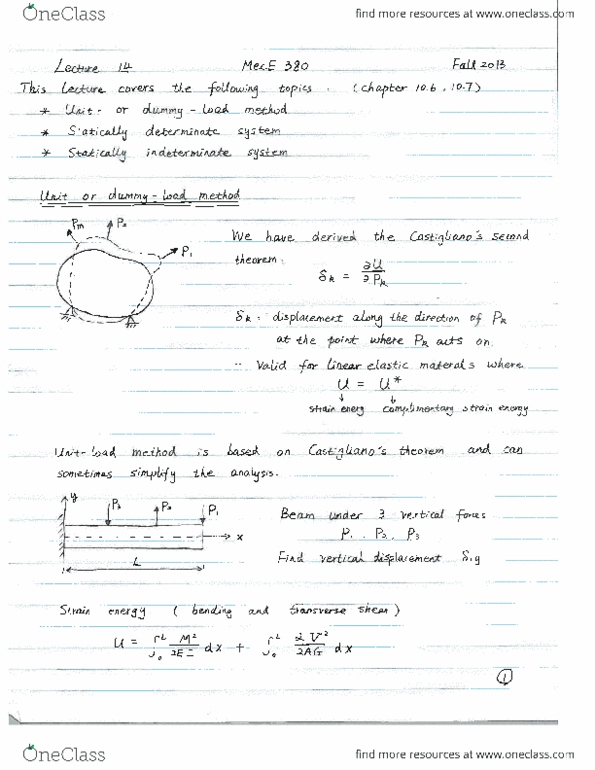 OneClass find more resources at www.oneclass.com
Lecture 14 MecE 380 Fall 2013
This lecture covers the following topics. (chapter 10.6, 10.7)
* Unit- or dummy-load method
* Statically determinate system
* Statically indeterminate system
Unit or dummy-load method
Pm P2 P1
We have derived the Castigliano's second
theorem:
δk = ∂U/∂Pk
δk: displacement along the direction of Pk
at the point where Pk acts on.
Valid for linear elastic materals where
U = U*
strain energy complimentary strain energy
Unit-load method is based on Castigliano's theorem and can
sometimes simplify the analysis.
y P3 P2 P1
x
L
Beam under 3 vertical forces
P1, P2, P3
Find vertical displacement
Strain energy (bending and transverse shear)
U = ∫₀ᴸ M²/2EI dx + ∫₀ᴸ V²/2AG dx
1
OneClass find more resources at www.oneclass.com